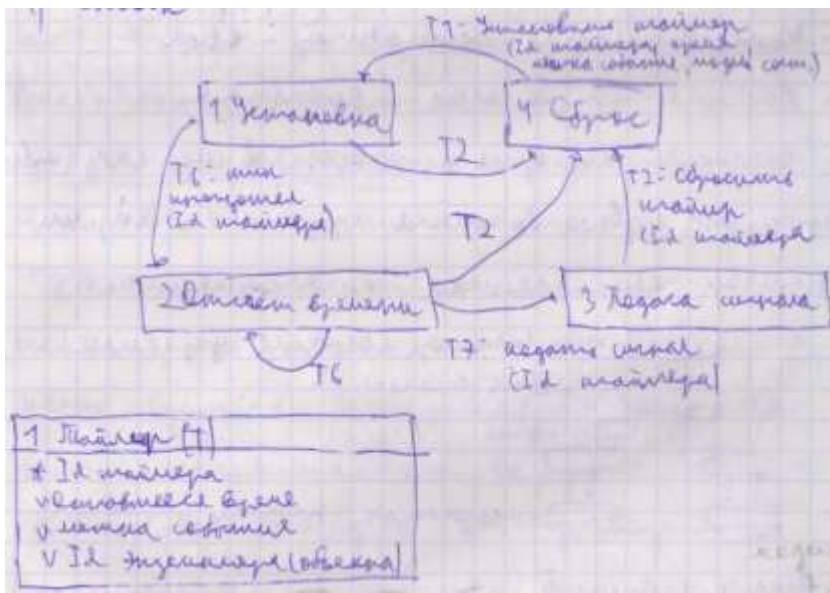 T1: Установить таймер
(Id таймера, время,
метка события,
1 Установка
4 Сброс
T2
T6: тик
(Id таймера)
T2: Сбросить
таймер
(Id таймера
T2
2 Отсчет времени
3 Подача сигнала
T6
T7: подать сигнал
(Id таймера)
1 Таймер (T)
* Id таймера
v Оставшееся время
v метка события
v Id экземпляра (объекта)